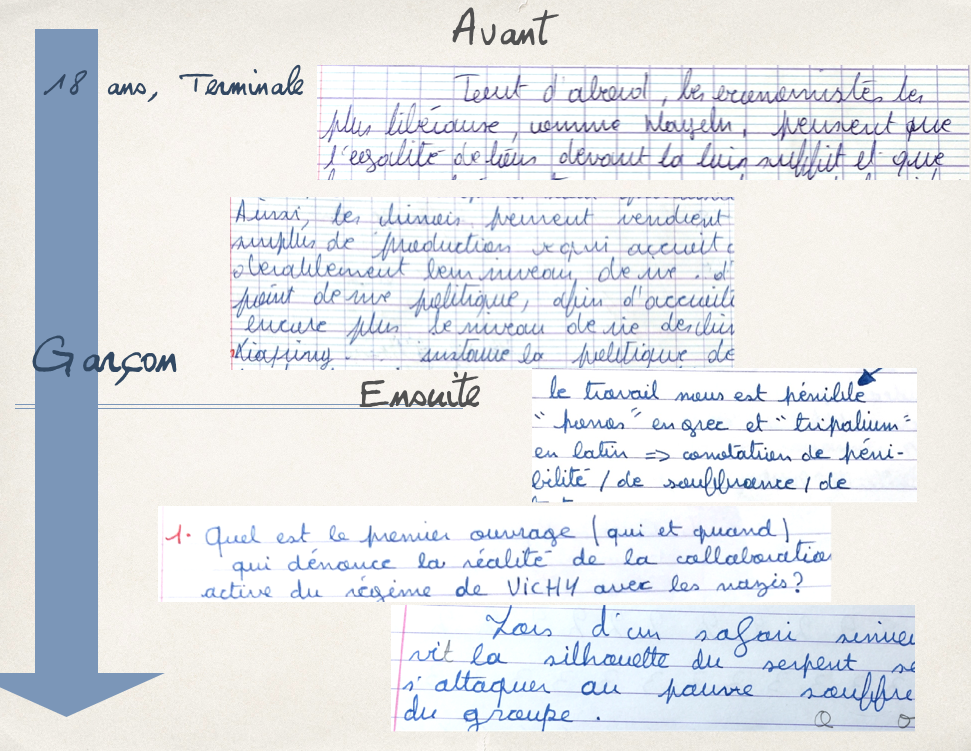 Avant
18 ans, Terminale
Tout d'abord, les economistes les
plus libéraux, comme Hayek, pensent que
l'egalité de tous devant la loi suffit et que
Ainsi, les chinois peuvent vendre
surplus de production
leur niveau de vie. d'
point de vue politique, afin d'
encore plus le niveau de vie des
Xiaping instaure la politique de
Garçon
Ensuite
le travail nous est pénible
"ponos" en grec et "tripalium"
en latin => connotation de péni-
bilité / de souffrance / de
1. Quel est le premier ouvrage (qui et quand)
qui dénonce la réalité de la collaboratio
active du régime de VICHY avec les nazis?
Lors d'un safari
vit la silhouette du serpent se
s'attaquer au pauvre souffre
du groupe.